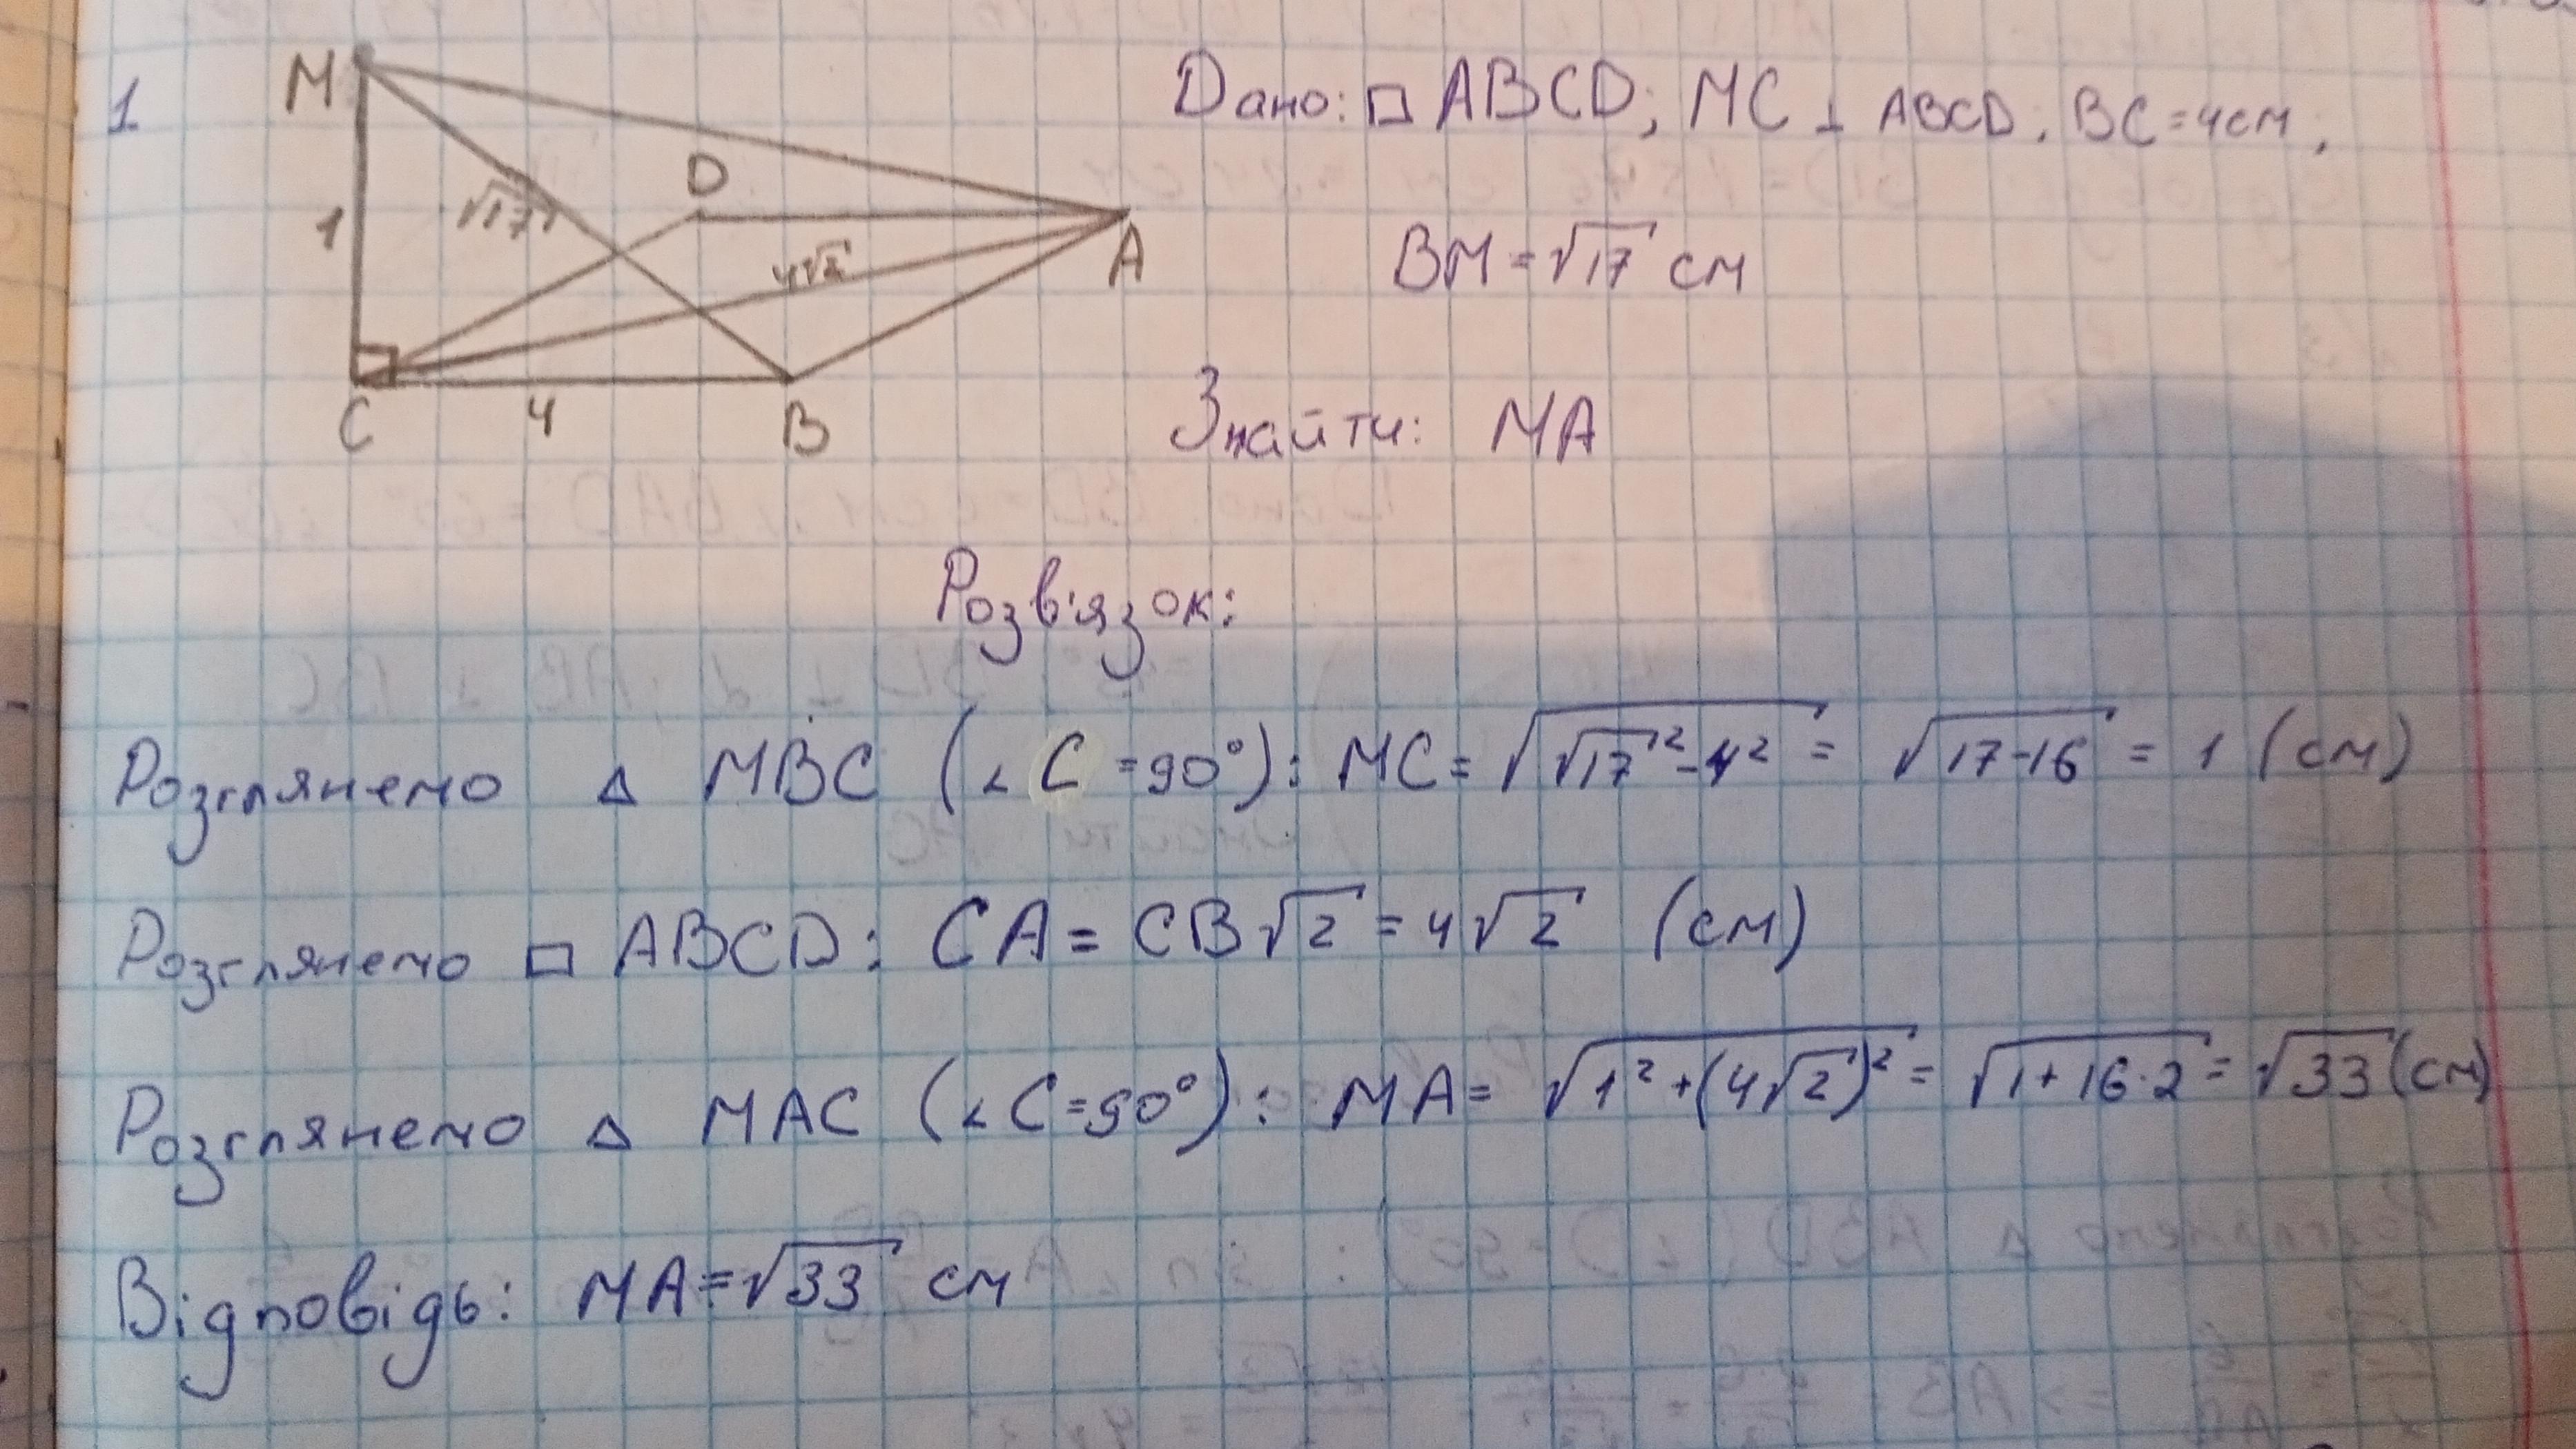 1
M
D
√17
1
4√2
A
C
4
B
Дано: □ ABCD; MC ⊥ ABCD; BC = 4см;
BM = √17 см
Знайти: MA
Розв'язок:
Розглянемо △ MBC (∠ C = 90°): MC = √(√17² - 4²) = √(17-16) = 1 (см)
Розглянемо □ ABCD: CA = CB√2 = 4√2 (см)
Розглянемо △ MAC (∠ C = 90°): MA = √(1² + (4√2)²) = √(1 + 16·2) = √33 (см)
Відповідь: MA = √33 см